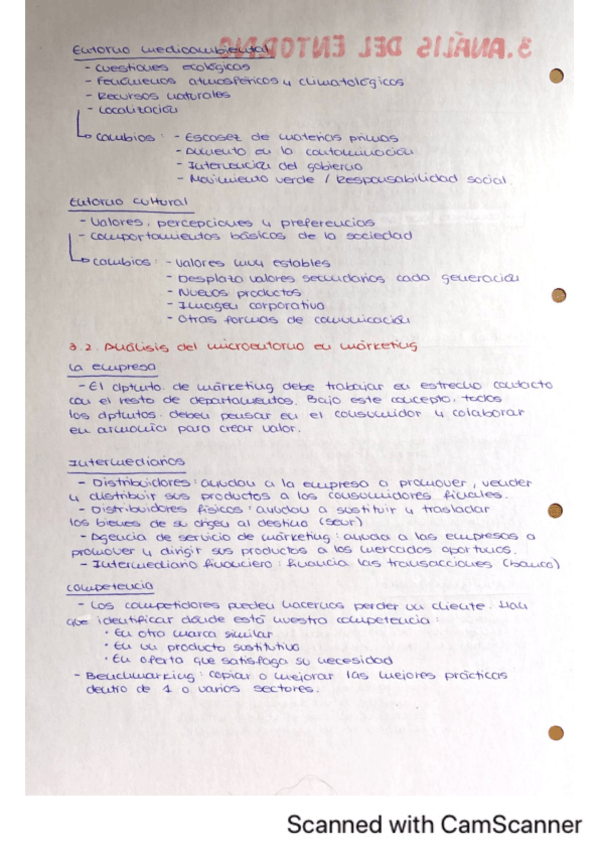 3. ANÁLISIS DEL ENTORNO
Entorno medioambiental
- Cuestiones ecológicas
- Fenómenos atmosféricos y climatológicos
- Recursos naturales
- Localización
Cambios: - Escasez de materias primas
- Aumento en la contaminación
- Intervención del gobierno
- Movimiento verde / Responsabilidad social.
Entorno cultural
- Valores, percepciones y preferencias
- Comportamientos básicos de la sociedad
Cambios: - Valores muy estables
- Desplata valores secundarios cada generación
- Nuevos productos
- Imagen corporativa
- Otras formas de comunicación
3.2. Análisis del microentorno en márketing
La empresa
- El dptmto. de márketing debe trabajar en estrecho contacto
con el resto de departamentos. Bajo este concepto, todos
los dptmtos. deben pensar en el consumidor y colaborar
en armonía para crear valor.
Intermediarios
- Distribuidores: ayudan a la empresa a promover, vender
y distribuir sus productos a los consumidores finales.
- Distribuidores físicos: ayudan a sustituir y trasladar
los bienes de su origen al destino (seur)
- Agencia de servicio de márketing: ayuda a las empresas a
promover y dirigir sus productos a los mercados oportunos.
- Intermediario financiero: financia las transacciones (banco)
Competencia
- Los competidores pueden hacernos perder un cliente. Hay
que identificar dónde está nuestra competencia:
· En otra marca similar
· En un producto sustitutivo
· En oferta que satisfaga su necesidad
- Benchmarking: copiar o mejorar las mejores prácticas
dentro de 1 o varios sectores.
Scanned with CamScanner